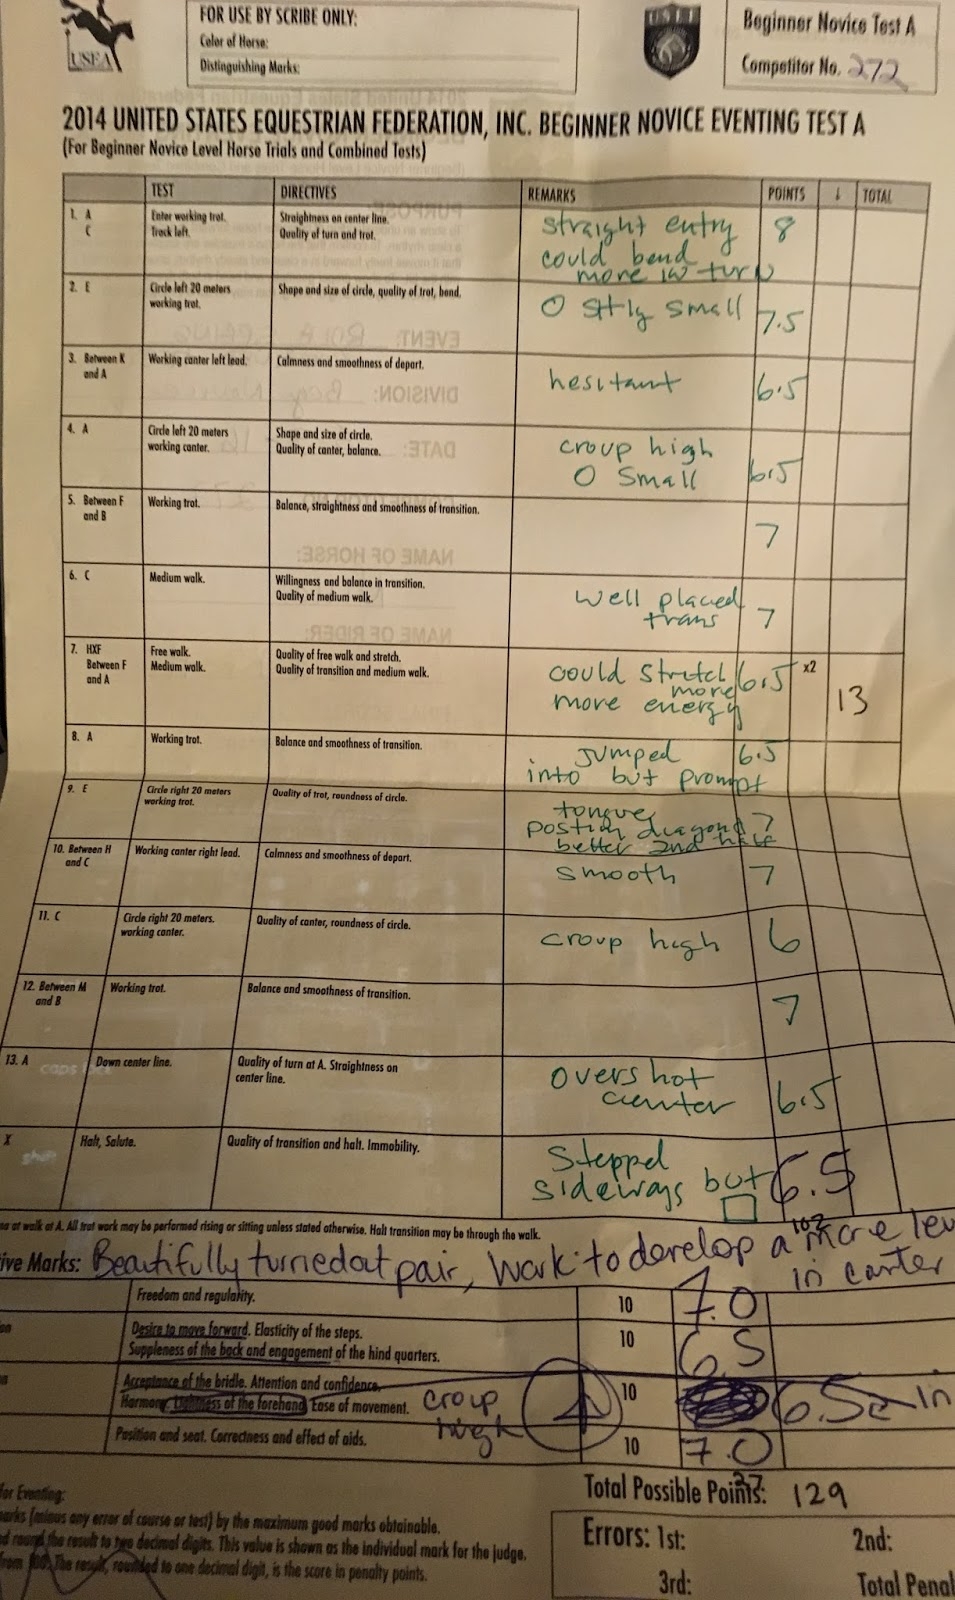 USEA
FOR USE BY SCRIBE ONLY:
Color of Horse:
Distinguishing Marks:
Beginner Novice Test A
Competitor No. 272
2014 UNITED STATES EQUESTRIAN FEDERATION, INC. BEGINNER NOVICE EVENTING TEST A
(For Beginner Novice Level Horse Trials and Combined Tests)
TEST DIRECTIVES REMARKS POINTS TOTAL
1. A Enter working trot. Straightness on center line. straight entry 8
C Track left. Quality of turn and trot. could bend
more in turn
2. E Circle left 20 meters Shape and size of circle, quality of trot, bend. O sltly small 7.5
working trot.
3. Between K Working canter left lead. Calmness and smoothness of depart. hesitant 6.5
and A
4. A Circle left 20 meters Shape and size of circle. croup high 6.5
working canter. Quality of canter, balance. O small
5. Between F Working trot. Balance, straightness and smoothness of transition. 7
and B
6. C Medium walk. Willingness and balance in transition. well placed 7
Quality of medium walk. trans
7. HXF Free walk. Quality of free walk and stretch. could stretch 6.5 x2 13
Between F Medium walk. Quality of transition and medium walk. more
and A more energy
8. A Working trot. Balance and smoothness of transition. jumped 6.5
into but prompt
9. E Circle right 20 meters Quality of trot, roundness of circle. tongue 7
working trot. better 2nd half
10. Between H Working canter right lead. Calmness and smoothness of depart. smooth 7
and C
11. C Circle right 20 meters. Quality of canter, roundness of circle. croup high 6
working canter.
12. Between M Working trot. Balance and smoothness of transition. 7
and B
13. A Down center line. Quality of turn at A. Straightness on overshot 6.5
center line. center
X Halt, Salute. Quality of transition and halt. Immobility. Stepped 6.5
sideways but
at walk at A. All trot work may be performed rising or sitting unless stated otherwise. Halt transition may be through the walk.
ive Marks: Beautifully turned out pair, work to develop a more lev
in canter
Freedom and regularity. 10 7.0
Desire to move forward. Elasticity of the steps. 10 6.5
Suppleness of the back and engagement of the hind quarters.
Acceptance of the bridle. Attention and confidence. 10 6.5 in
Harmony. Lightness of the forehand. Ease of movement. croup high
Position and seat. Correctness and effect of aids. 10 7.0
for Eventing:
Total Possible Points: 129
arks (minus any error of course or test) by the maximum good marks obtainable.
d round the result to two decimal digits. This value is shown as the individual mark for the judge.
from 100. The result, rounded to one decimal digit, is the score in penalty points.
Errors: 1st: 2nd:
3rd: Total Penal